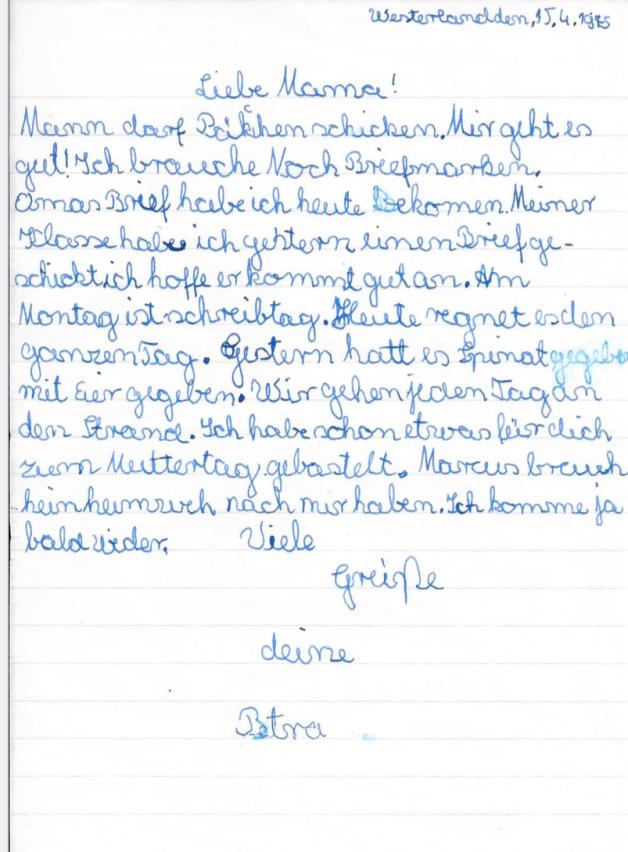 Westerland den, 15.4.1975
Liebe Mama!
Mann darf Päckhen schicken. Mir geht es
gut! Ich brauche Noch Briefmarken.
Omas Brief habe ich heute Bekomen. Meiner
Klasse habe ich gestern einen Brief ge-
schickt ich hoffe er kommt gut an. Am
Montag ist schreibtag. Heute regnet es den
ganzen Tag. Gestern hatt es Spinat gegeben
mit Eier gegeben. Wir gehen jeden Tag an
den Strand. Ich habe schon etwas für dich
zum Muttertag gebastelt. Marcus brauch
kein heimweh nach mir haben. Ich komme ja
bald wieder. Viele
Grüße
deine
Petra